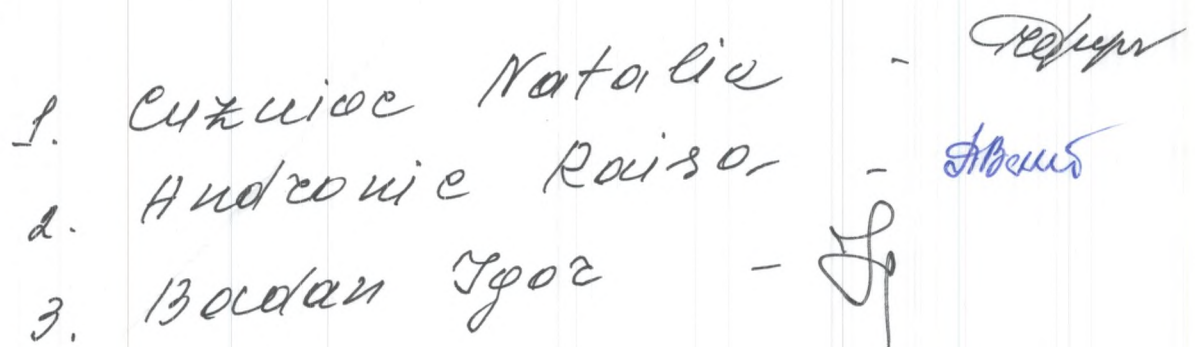 1. Cuznioc Natalia -
2. Andronic Raisa -
3. Bodan Igor -